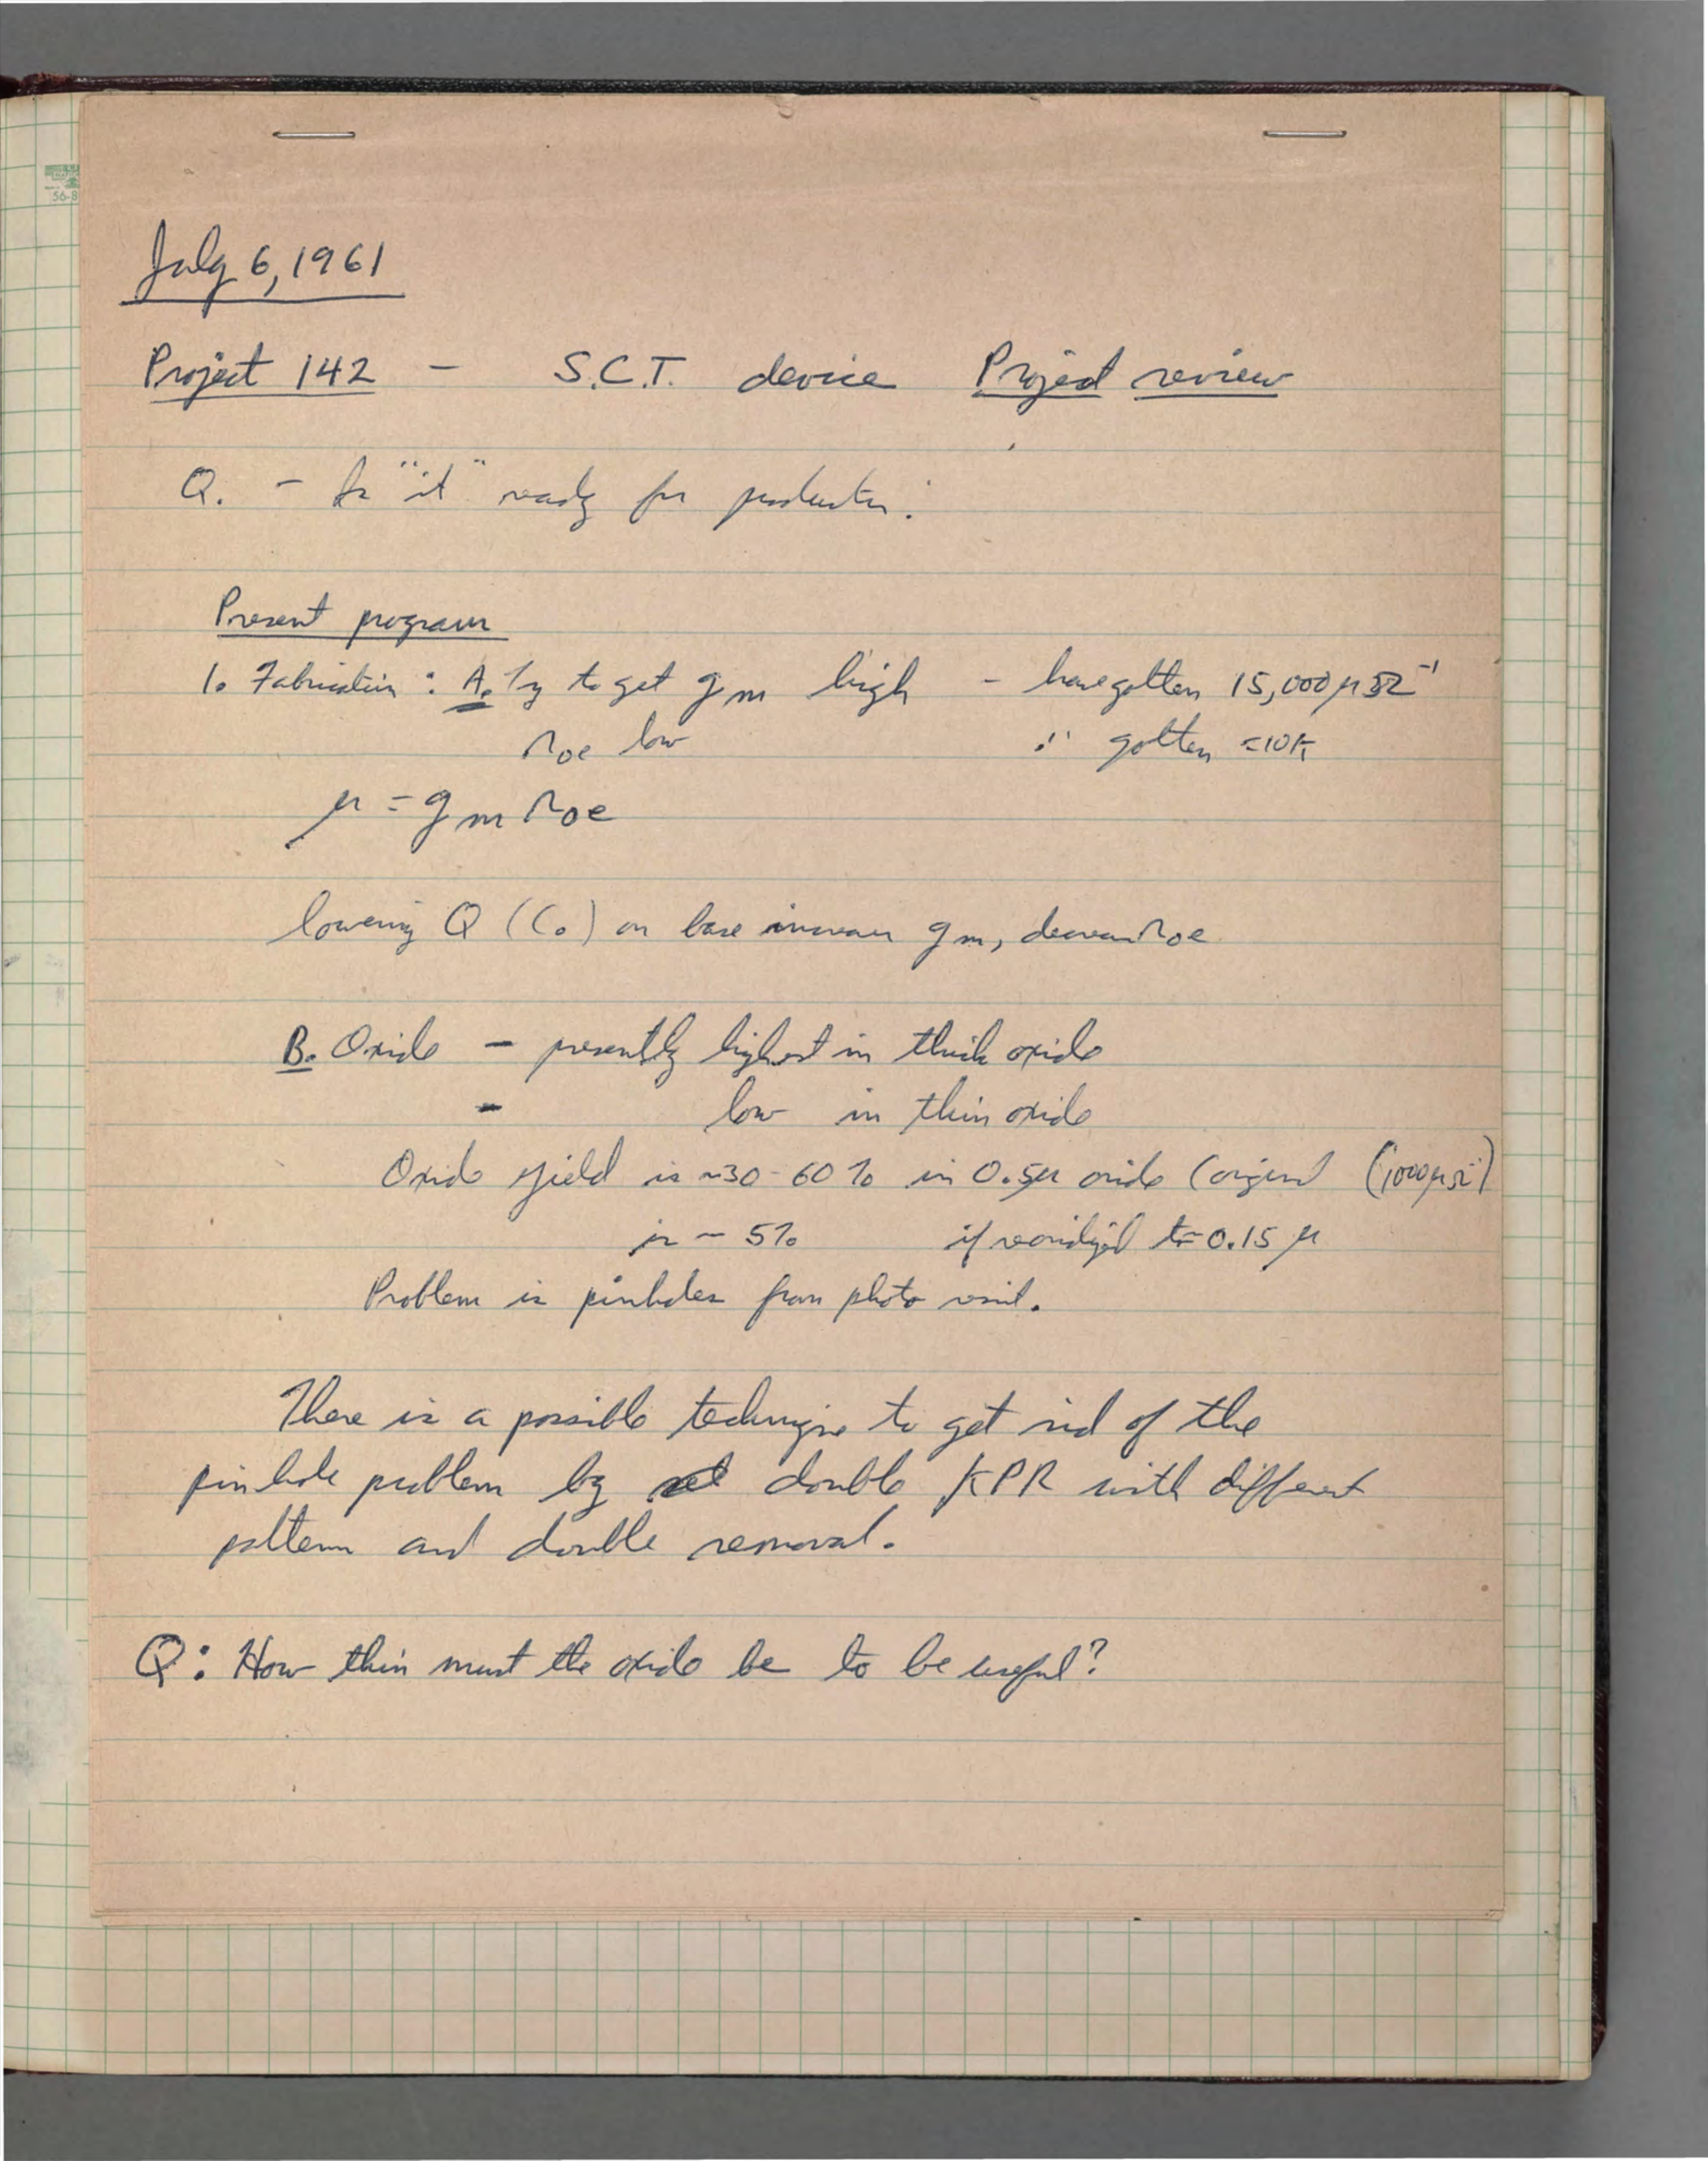 July 6, 1961
Project 142 - S.C.T. device Project review
Q. - Is "it" ready for production?
Present program
1. Fabrication: A. Try to get gm high - have gotten 15,000 μ℧⁻¹
roe low ∴ gotten ≈10K
μ = gm roe
lowering Q (Co) on base increases gm, decreases roe
B. Oxide - presently highest in thick oxide
- low in thin oxide
Oxide yield is ~30-60% in 0.5μ oxide (original (1000μΩ⁻¹)
is ~ 5% if reoxidized to 0.15 μ
Problem is pinholes from photo resist.
There is a possible technique to get rid of the
pinhole problem by double KPR with different
pattern and double removal.
Q: How thin must the oxide be to be useful?